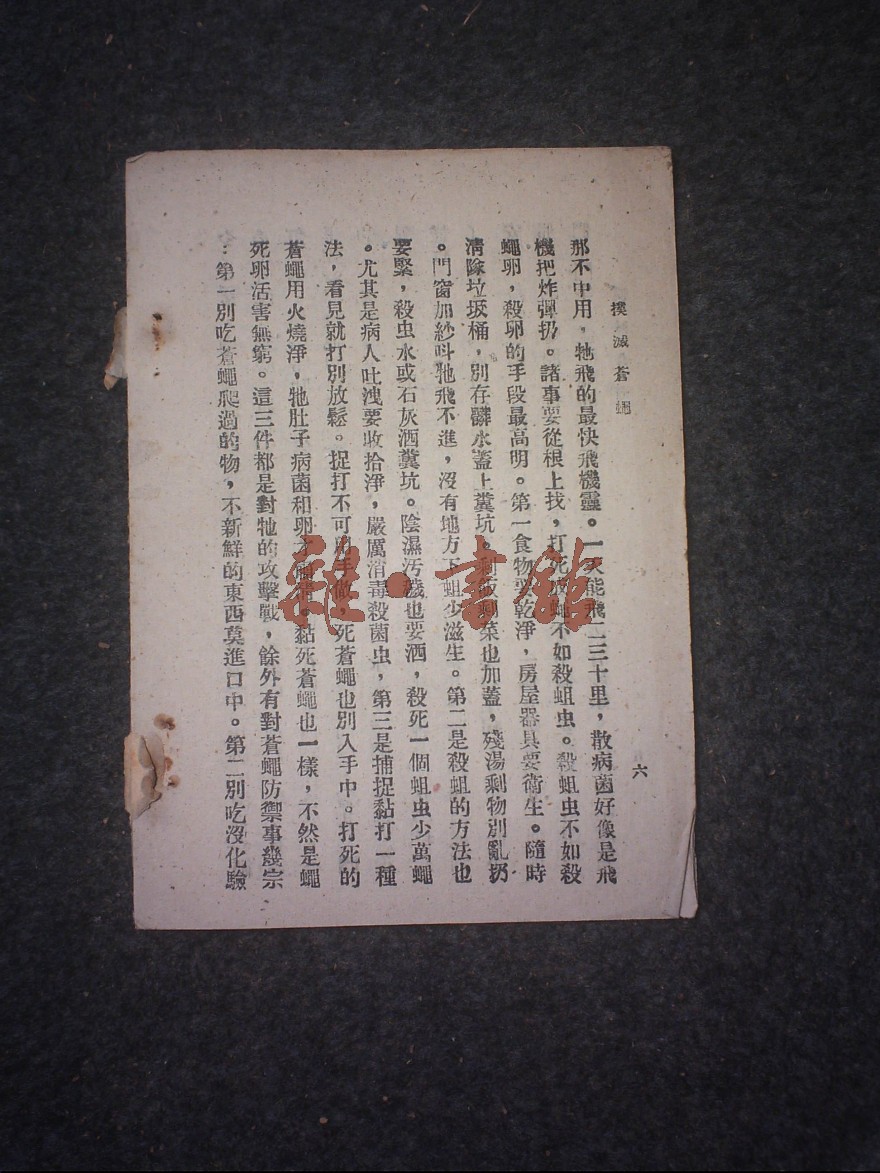 撲滅蒼蠅
六
那不中用，牠飛的最快飛機靈。一天能飛二三十里，散病菌好像是飛
機把炸彈扔。諸事要從根上找，打死蒼蠅不如殺蛆虫。殺蛆虫不如殺
蠅卵，殺卵的手段最高明。第一食物要乾淨，房屋器具要衛生。隨時
清除垃圾桶，別存髒水蓋上糞坑。剩飯剩菜也加蓋，殘湯剩物別亂扔
。門窗加紗叫牠飛不進，沒有地方下蛆少滋生。第二是殺蛆的方法也
要緊，殺虫水或石灰洒糞坑。陰濕汚穢也要洒，殺死一個蛆虫少萬蠅
。尤其是病人吐洩要收拾淨，嚴厲消毒殺菌虫，第三是捕捉黏打一種
法，看見就打別放鬆。捉打不可用手做，死蒼蠅也別入手中。打死的
蒼蠅用火燒淨，牠肚子病菌和卵才 黏死蒼蠅也一樣，不然是蠅
死卵活害無窮。這三件都是對牠的攻擊戰，餘外有對蒼蠅防禦事幾宗
：第一別吃蒼蠅爬過的物，不新鮮的東西莫進口中。第二別吃沒化驗
雜·書館